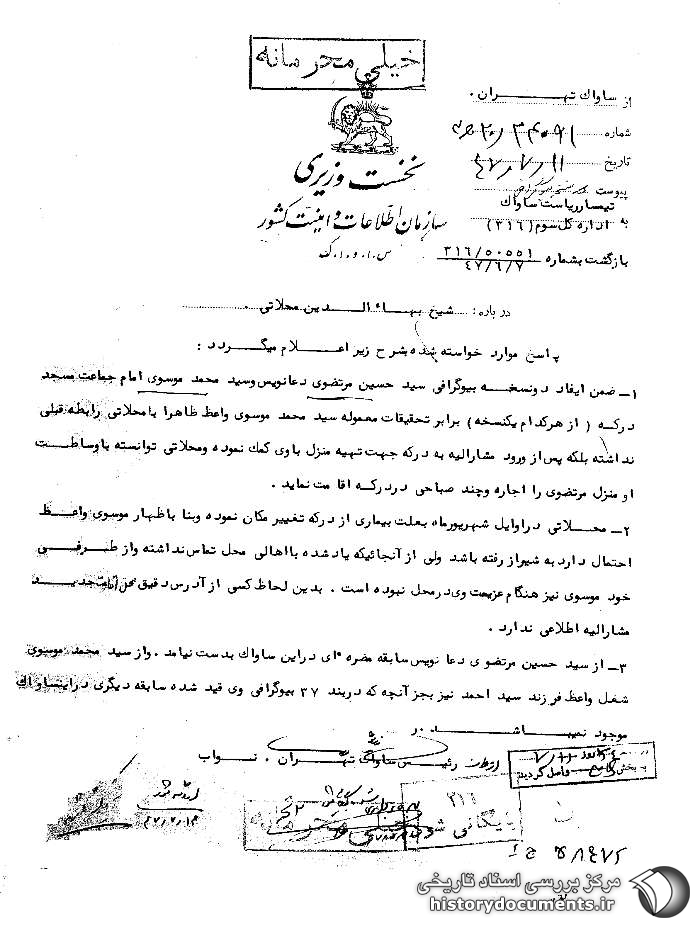 خیلی محرمانه
از ساواك تهــــران .
شماره ۲۰/۳۴۰۹۱ ه‍ ۳
تاریخ ۴۷/۷/۱۱
پیوست
نخست وزیری
سازمان اطلاعات و امنیت کشور
س.ا.و.ا.ک
تیمسار ریاست ساواك
به اداره کل سوم (۳۱۶)
بازگشت بشماره ۳۱۶/۵۰۵۵۱
۴۷/۶/۷
درباره : شیخ بهاء الدین محلاتی .
پاسخ موارد خواسته شده بشرح زیر اعـــلام میگـــردد :
۱ـ ضمن ایفاد دونسخه بیوگرافی سید حسین مرتضوی دعانویس وسید محمد موسوی امام جماعت مسجد
درکه ( از هرکدام یکنسخه ) برابر تحقیقات معموله سید محمد موسوی واعظ ظاهرا با محلاتی رابطه قبلی
نداشته بلکه پس از ورود مشارالیه به درکه جهت تهیه منزل باوی کمك نموده ومحلاتی توانسته باوساطت
او منزل مرتضوی را اجاره وچند صباحی دردرکه اقامت نماید .
۲ـ محـــلاتی دراوایل شهریورماه بعلت بیماری از درکه تغییر مکان نموده وبنا باظهار موسوی واعــظ
احتمال دارد به شیراز رفته باشد ولی از آنجائیکه یادشده با اهالی محل تماس نداشته واز طـــرفـــی
خود موسوی نیز هنگام عزیمت وی در محل نبوده است . بدین لحاظ کسی از آدرس دقیق محل اقامت جدیـــد
مشارالیه اطلاعی ندارد .
۳ـ از سید حسین مرتضوی دعا نویس سابقه مضره ای دراین ساواك بدست نیامد . واز سید محمد موسوی
شغل واعظ فرزند سید احمد نیز بجز آنچه که دربند ۳۷ بیوگرافی وی قید شده سابقه دیگری دراینساواك
موجود نمیبـــاشـــد .
رئیس ساواك تهـــران . نـــواب
به بخش واصل گردید
۳۱۶
بایگانی شود
مرکز بررسی اسناد تاریخی
historydocuments.ir